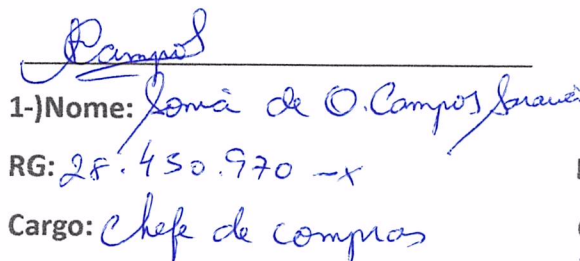 Campos
1-)Nome: Sonia de O. Campos
RG: 28.450.970-x
Cargo: Chefe de compras